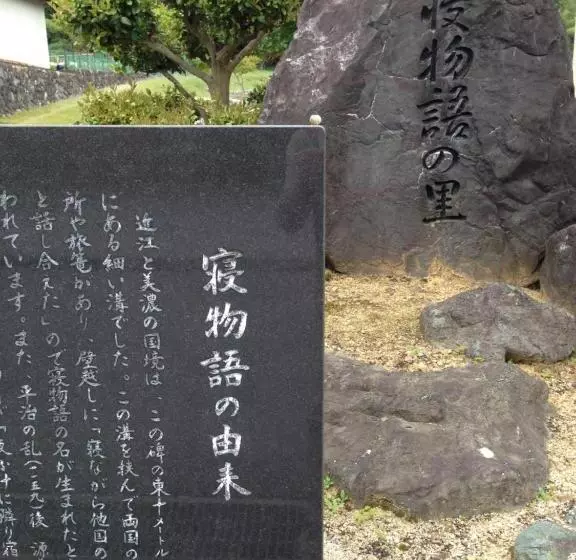 寝物語の里
寝物語の由来
近江と美濃の国境は、この碑の東十メートル
にある細い溝でした。この溝を挟んで両国の
所や旅篭があり、壁越しに「寝ながら他国の
と話し合えた」ので寝物語の名が生まれたと
われています。また、平治の乱(一一五九)後 源
夜ふけに隣り宿